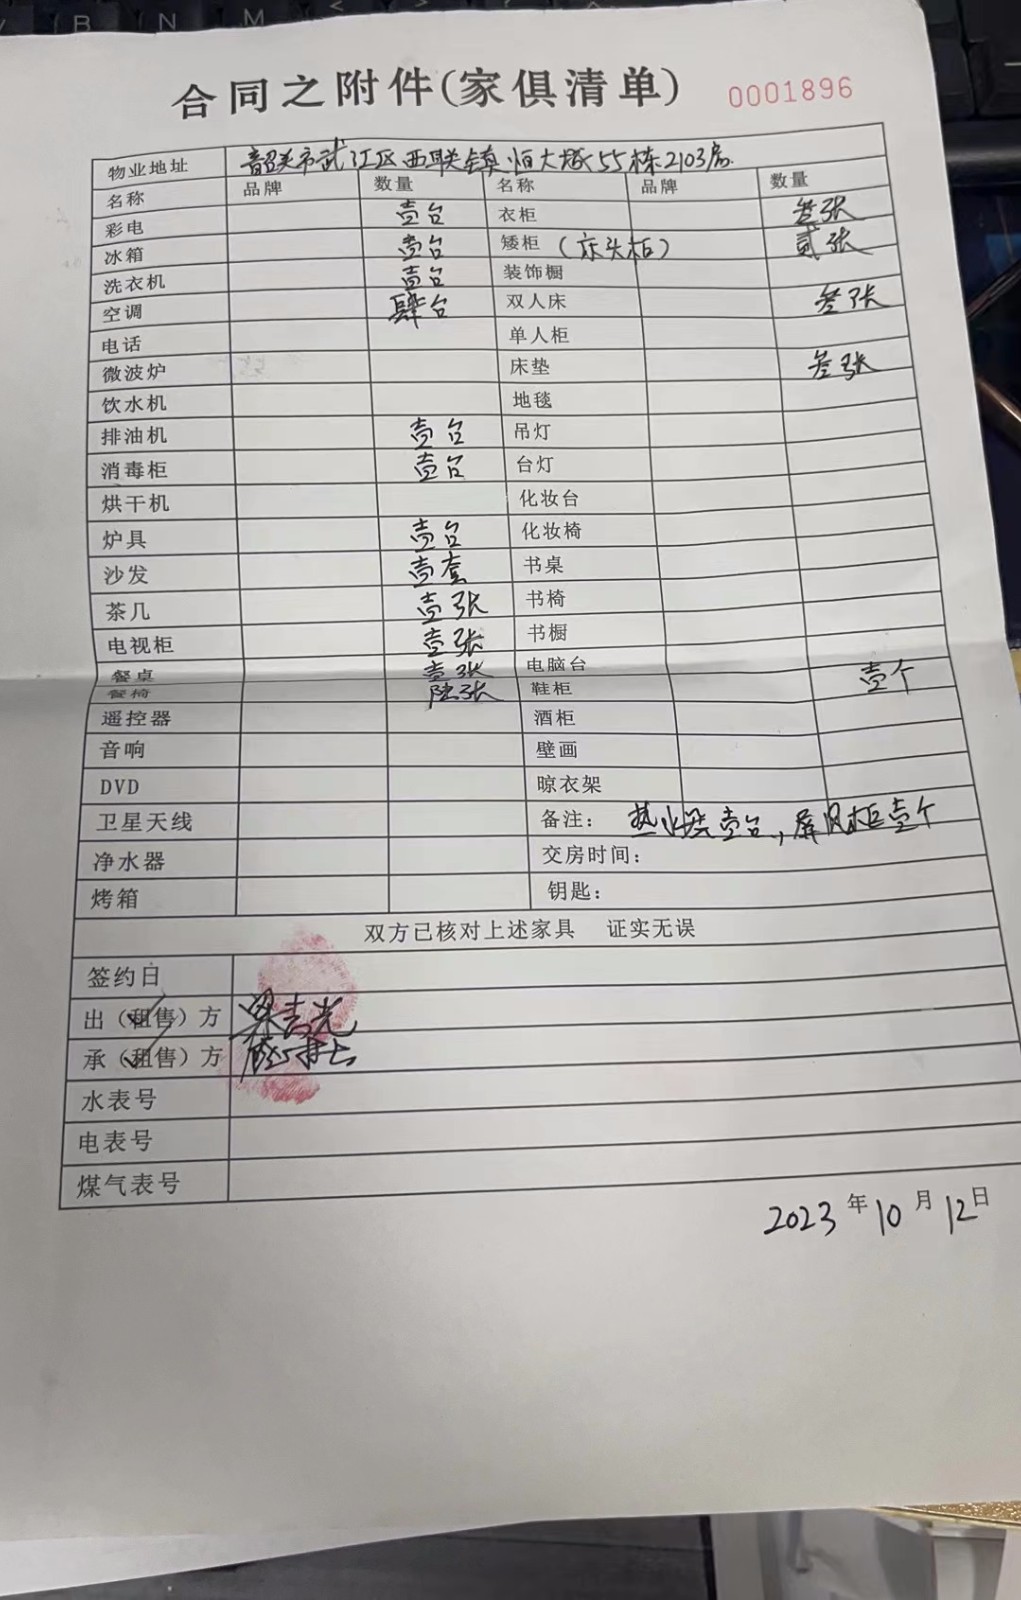 合同之附件(家俱清单) 0001896
物业地址 韶关市武江区西联镇恒大城55栋2103房
名称 品牌 数量 名称 品牌 数量
彩电 壹台 衣柜 叁张
冰箱 壹台 矮柜 (床头柜) 贰张
洗衣机 壹台 装饰橱
空调 肆台 双人床 叁张
电话 单人柜
微波炉 床垫 叁张
饮水机 地毯
排油机 壹台 吊灯
消毒柜 壹台 台灯
烘干机 化妆台
炉具 壹台 化妆椅
沙发 壹套 书桌
茶几 壹张 书椅
电视柜 壹张 书橱
餐桌 壹张 电脑台
餐椅 陆张 鞋柜 壹个
遥控器 酒柜
音响 壁画
DVD 晾衣架
卫星天线 备注: 热水器壹台,屏风柜壹个
净水器 交房时间:
烤箱 钥匙:
双方已核对上述家具 证实无误
签约日
出(租售)方
承(租售)方
水表号
电表号
煤气表号
2023年10月12日